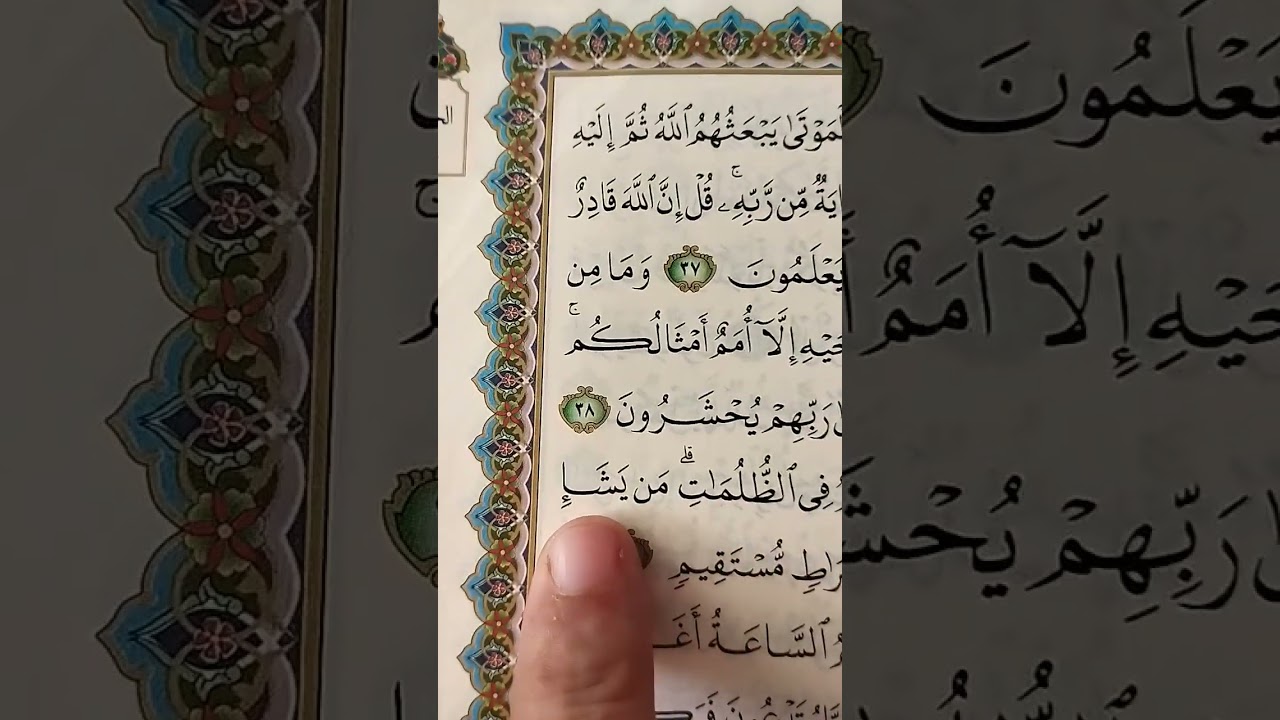 لْمَوْتَىٰ يَبْعَثُهُمُ ٱللَّهُ ثُمَّ إِلَيْهِ
ايَةٌ مِّن رَّبِّهِۦ ۚ قُلْ إِنَّ ٱللَّهَ قَادِرٌ
يَعْلَمُونَ ٣٧ وَمَا مِن
حَيْهِ إِلَّآ أُمَمٌ أَمْثَالُكُم ۚ
رَبِّهِمْ يُحْشَرُونَ ٣٨
فِى ٱلظُّلُمَـٰتِ ۗ مَن يَشَإِ
رَاطٍ مُّسْتَقِيمٍ
ٱلسَّاعَةُ أَغَ
تَدْعُونَ فَ